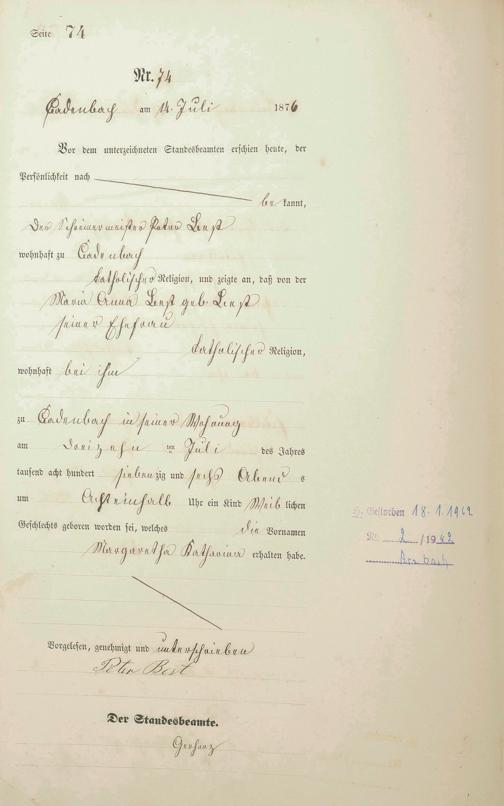 Seite 74
Nr. 74
Cadenbach am 14. Juli 1876
Vor dem unterzeichneten Standesbeamten erschien heute, der
Persönlichkeit nach
be kannt,
Der Schreinermeister Peter Best
wohnhaft zu Cadenbach
katholischer Religion, und zeigte an, daß von der
Maria Anna Best geb. Best
seiner Ehefrau
katholischer Religion,
wohnhaft bei ihm
zu Cadenbach in seiner Wohnung
am dreizehn ten Juli des Jahres
tausend acht hundert siebenzig und sechs Abend s
um Achteinhalb Uhr ein Kind Weib lichen
Geschlechts geboren worden sei, welches die Vornamen
Margaretha Katharina erhalten habe.
Gestorben 18.1.1942
Nr. 2 /1942
Arzbach
Vorgelesen, genehmigt und unterschrieben
Peter Best
Der Standesbeamte.
Gerharz